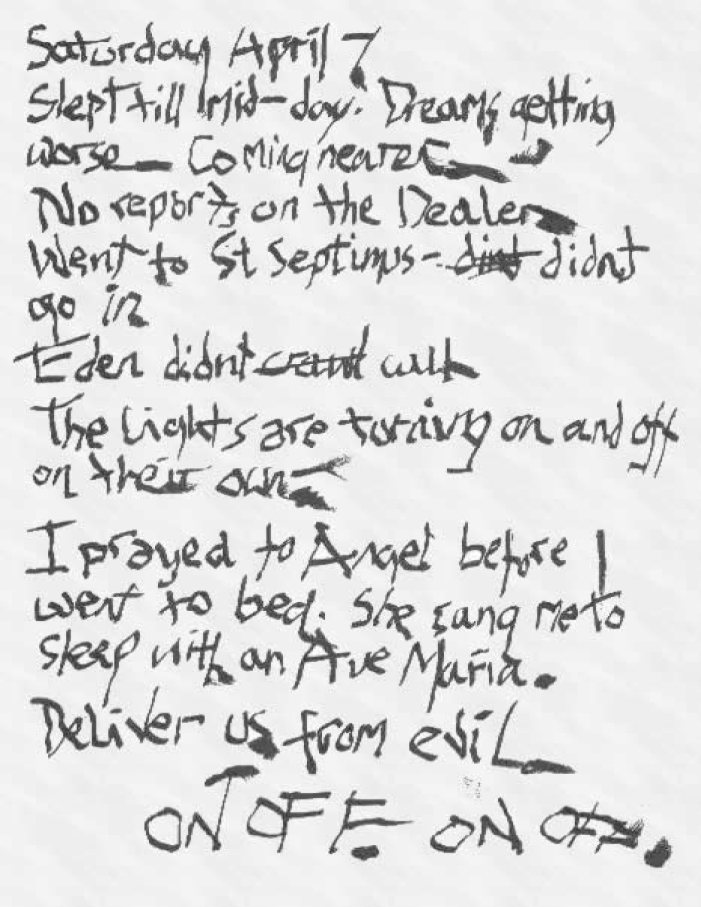 Saturday April 7
Slept till mid-day. Dreams getting
worse - Coming nearer -
No reports on the Dealer
Went to St Septimus - didnt
go in
Eden didnt call
The Lights are turning on and off
on their own -
I prayed to Angel before I
went to bed. She sang me to
sleep with an Ave Maria.
Deliver us from evil
ON OFF ON OFF.